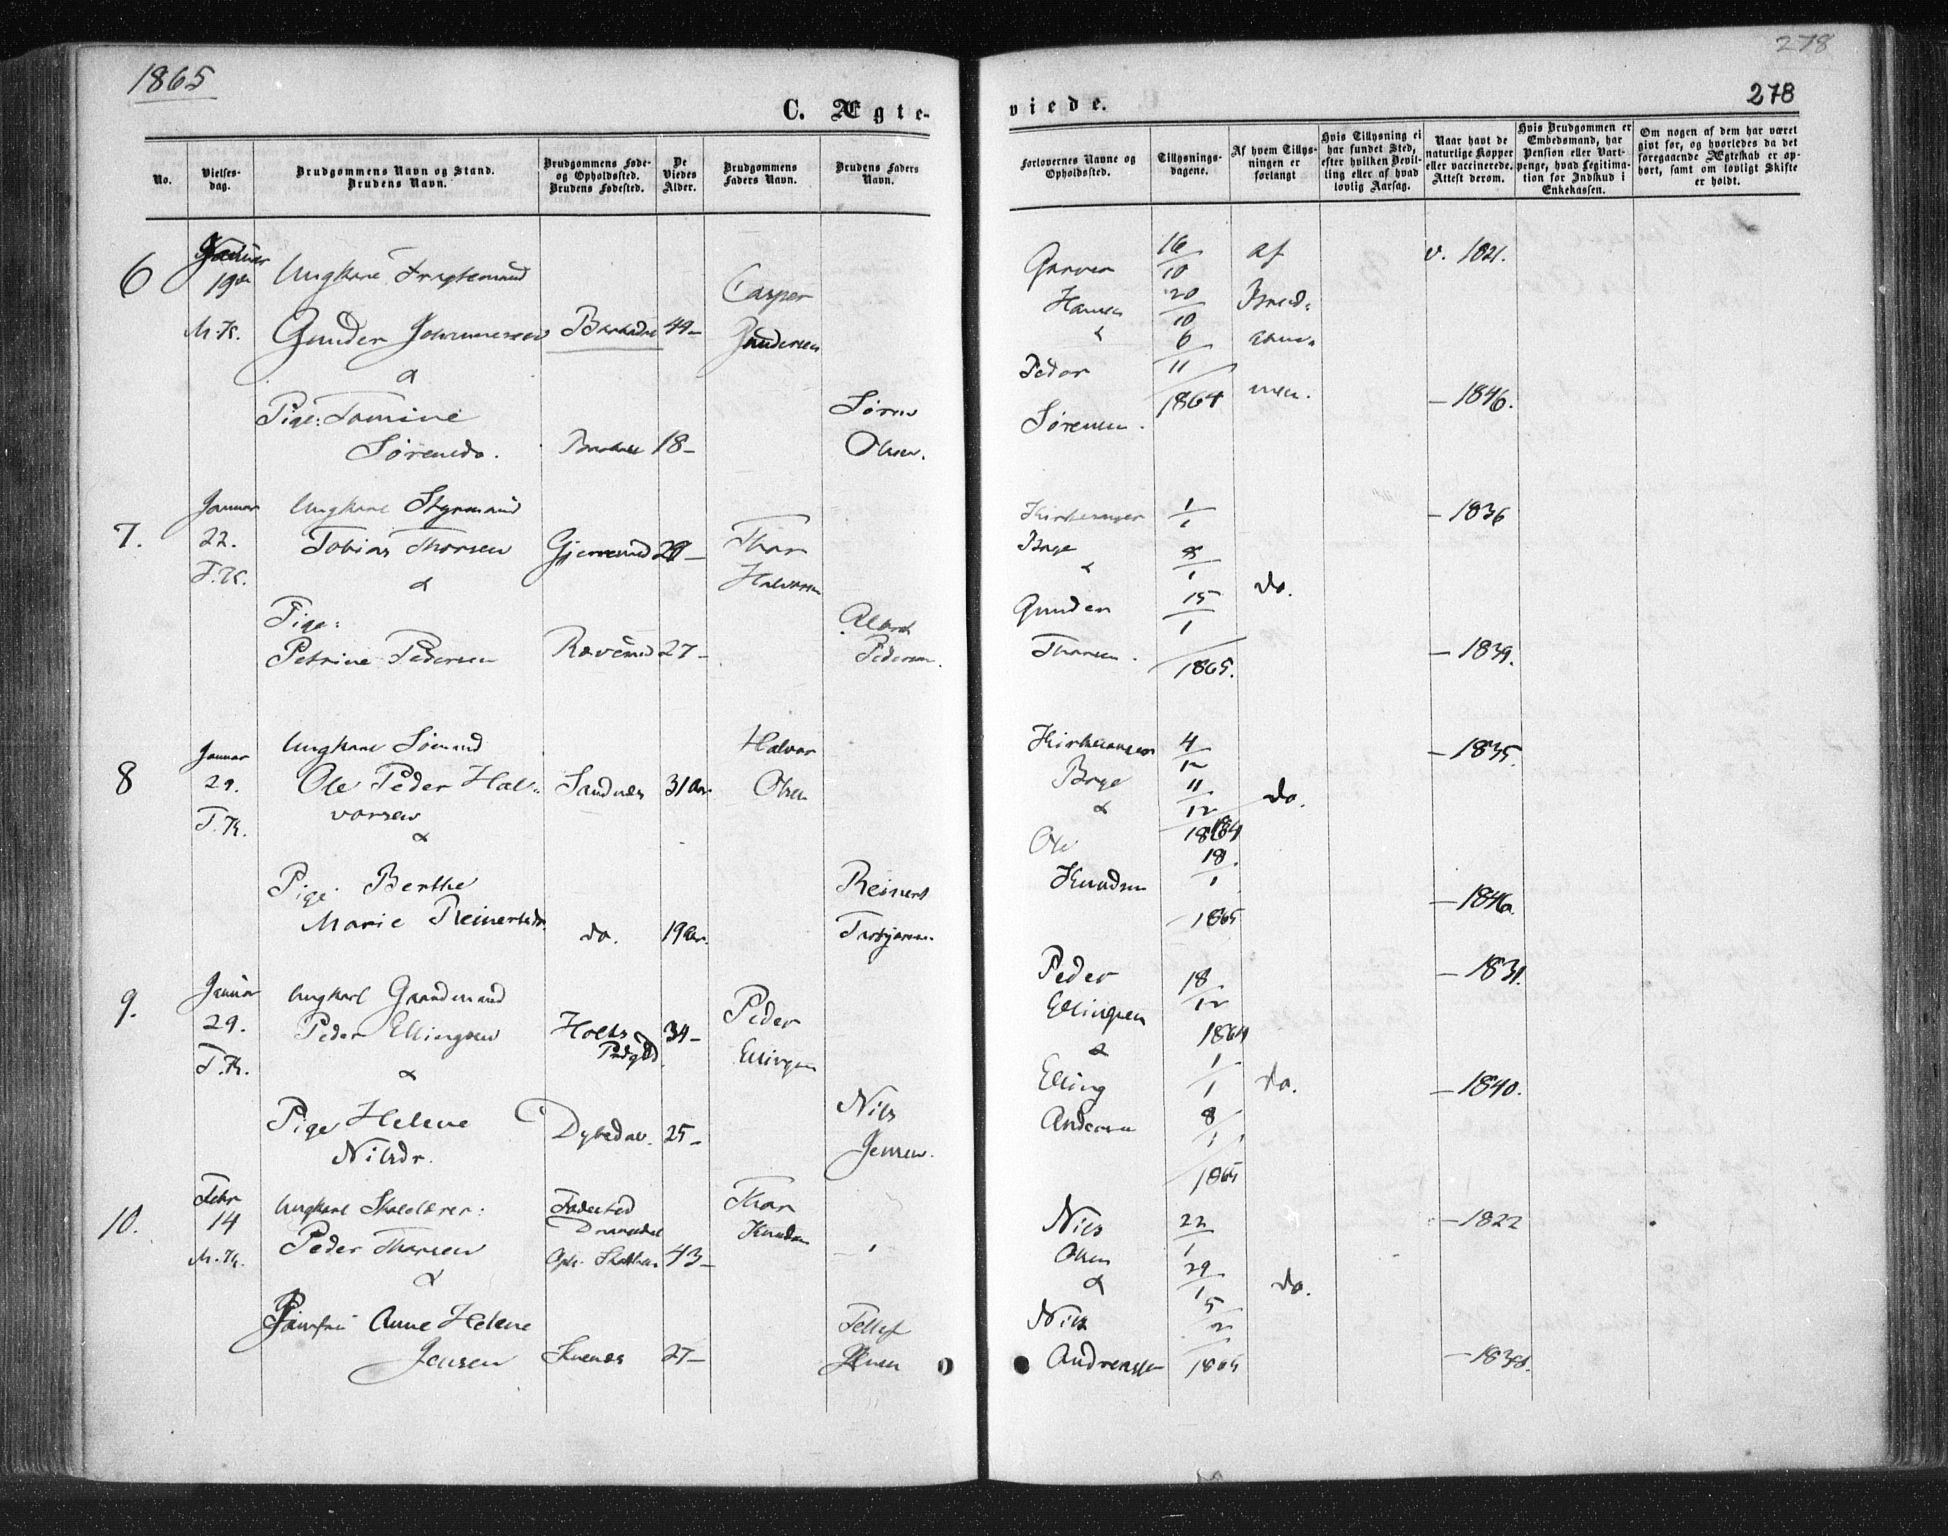 1865
278
278
C. Ægte-
viede.
No.
Vielses-
dag.
Brudgommens Navn og Stand.
Brudens Navn.
Brudgommens Føde-
og Opholdssted.
Brudens Fødested.
De
Viedes
Alder.
Brudgommens
Faders Navn.
Brudens Faders
Navn.
Forlovernes Navne og
Opholdssted.
Tillysnings-
dagene.
Af hvem Tillys-
ningen er
forlangt
Hvis Tillysning ei
har fundet Sted,
efter hvilken Bevil-
ling eller af hvad
lovlig Aarsag.
Naar havt de
naturlige Kopper
eller vaccinerede.
Attest derom.
Hvis Brudgommen er
Embedsmand, har
Pension eller Vart-
penge, hvad Legitima-
tion for Indskud i
Enkekassen.
Om nogen af dem har været
gift før, og hvorledes da det
foregaaende Ægteskab er op-
hørt, samt om lovligt Skifte
er holdt.
6
Januar
19de
M.K.
Ungkarl
Gunder
44-
&
Pige:
Sørensdr.
18-
Casper
Gundersen
Søren
Olsen.
Hansen
&
Peder
Sørensen.
16/10
20/10
6/11
1864
af
Brud-
v. 1821.
- 1846.
7.
Januar
22.
T.K.
Ungkarl Styrmand
Tobias Thorsen
&
Pige:
Petrine Pedersen
27-
Thor
Halvorsen
Pedersen.
&
Gunder
Thorsen.
1/1
8/1
15/1
1865.
do.
- 1836
- 1839.
8
Januar
29.
T.K.
Ungkarl Sømand
Ole Peder Hal-
vorsen
&
Sandnæs
31 Aar.
Halvor
Olsen
Pige Berthe
Marie Reinertsdr.
do.
19 Aar.
Reinert
Torbjørnsen.
&
Ole
Knudsen
4/12
11/12
1864
18/1
1865
do.
- 1835.
- 1846.
9.
Januar
29.
T.K.
Ungkarl Gaardmand
Peder Ellingsen
&
Holts
Prdgd.
34-
Peder
Ellingsen
Pige Helene
Nilsdr.
25-
Nils
Jensen.
Peder
Ellingsen
&
Elling
18/12
1864
1/1
8/1
1865
do.
- 1831.
- 1840.
10.
Febr
14
M.K.
Ungkarl Skolelærer:
Peder Thorsen
&
Fødested
43-
Thor
Knudsen
Jomfru Anne Helene
Jensen
27-
Tellef
Jensen
Nils
Olsen
&
Nils
22/1
29/1
5/2
1865
do.
- 1822
- 1838.